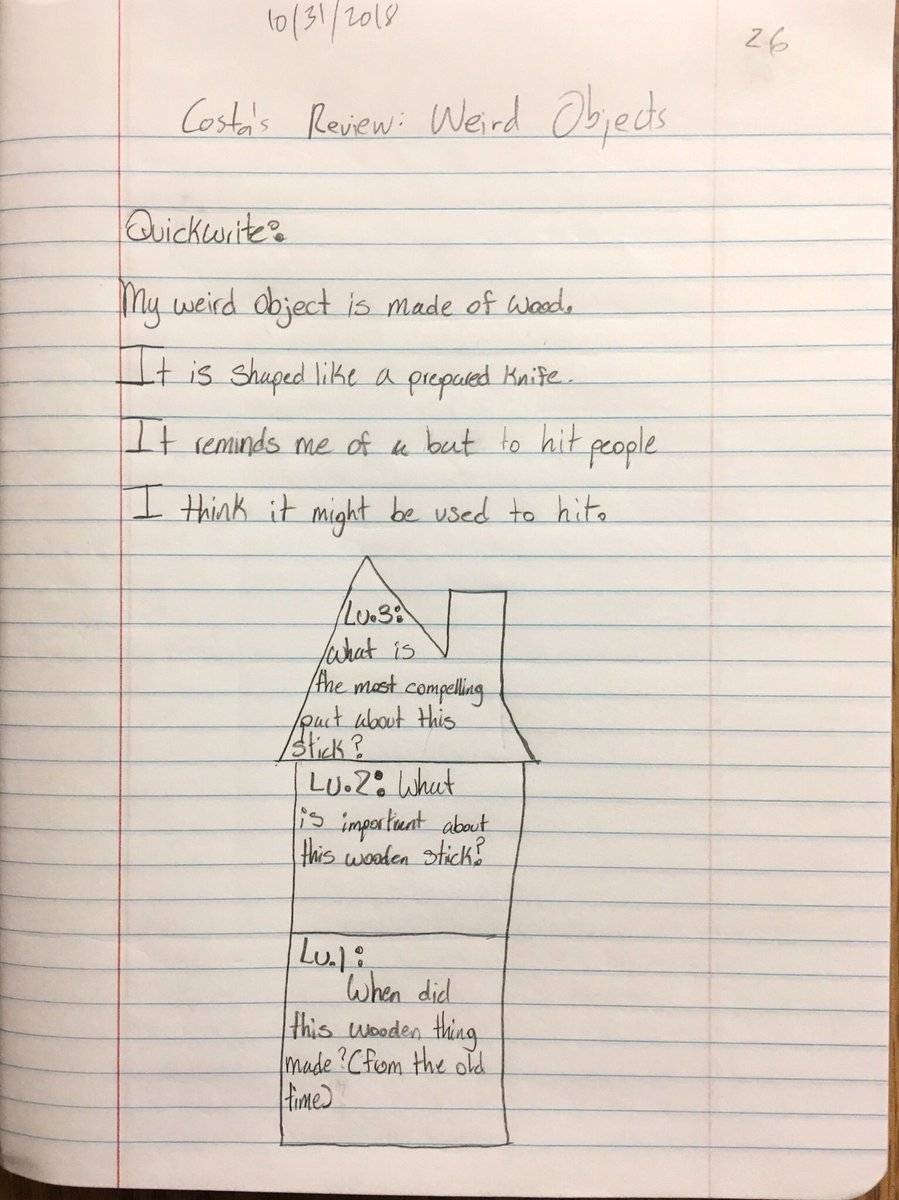 10/31/2018
26
Costa's Review: Weird Objects
Quickwrite:
My weird object is made of wood.
It is shaped like a prepared knife.
It reminds me of a bat to hit people
I think it might be used to hit.
Lv.3:
What is
the most compelling
part about this
stick?
Lv.2: What
is important about
this wooden stick?
Lv.1:
When did
this wooden thing
made? (from the old
time)